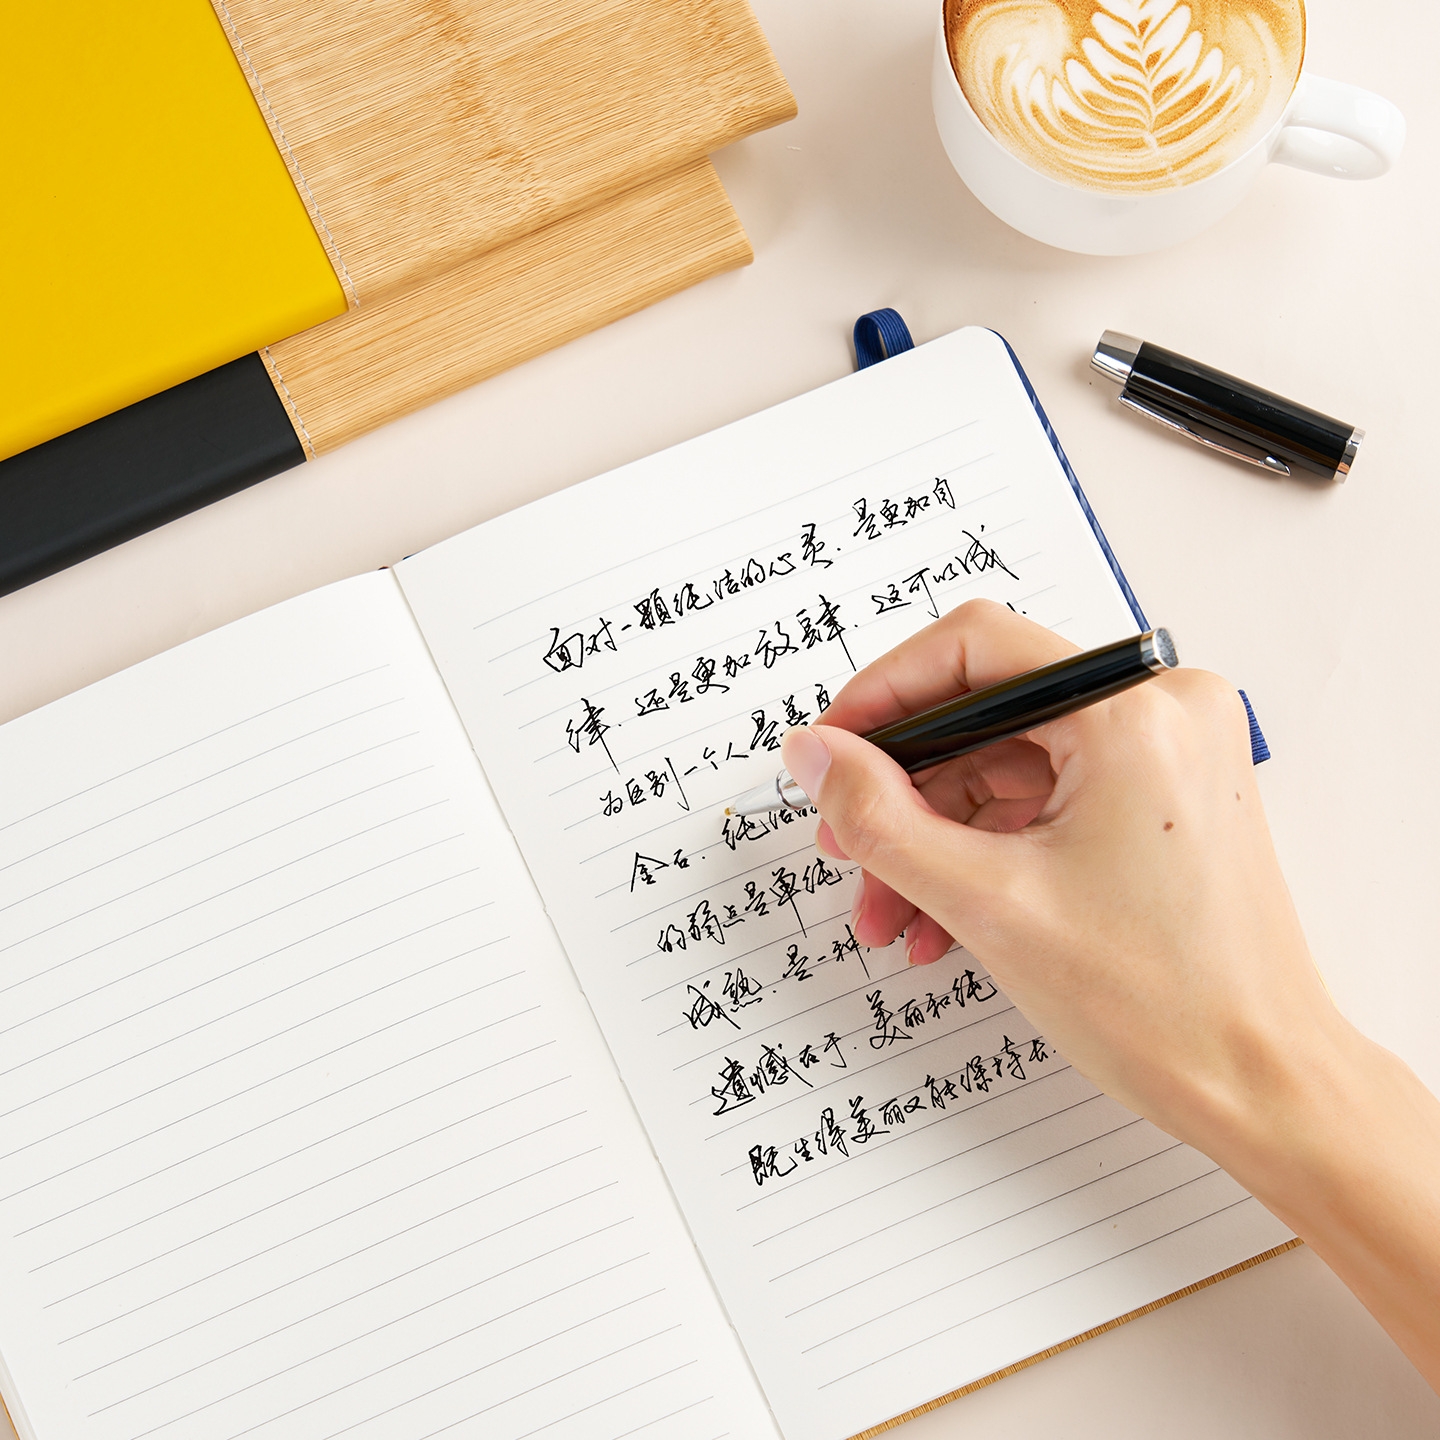 面对一颗纯洁的心灵.是更加自
律.还是更加放肆.这可以成
为区别一个人是善良
金石.纯洁的
的弱点是单纯.
成熟.是一种
遗憾在于.美丽和纯
既生得美丽又能保持长